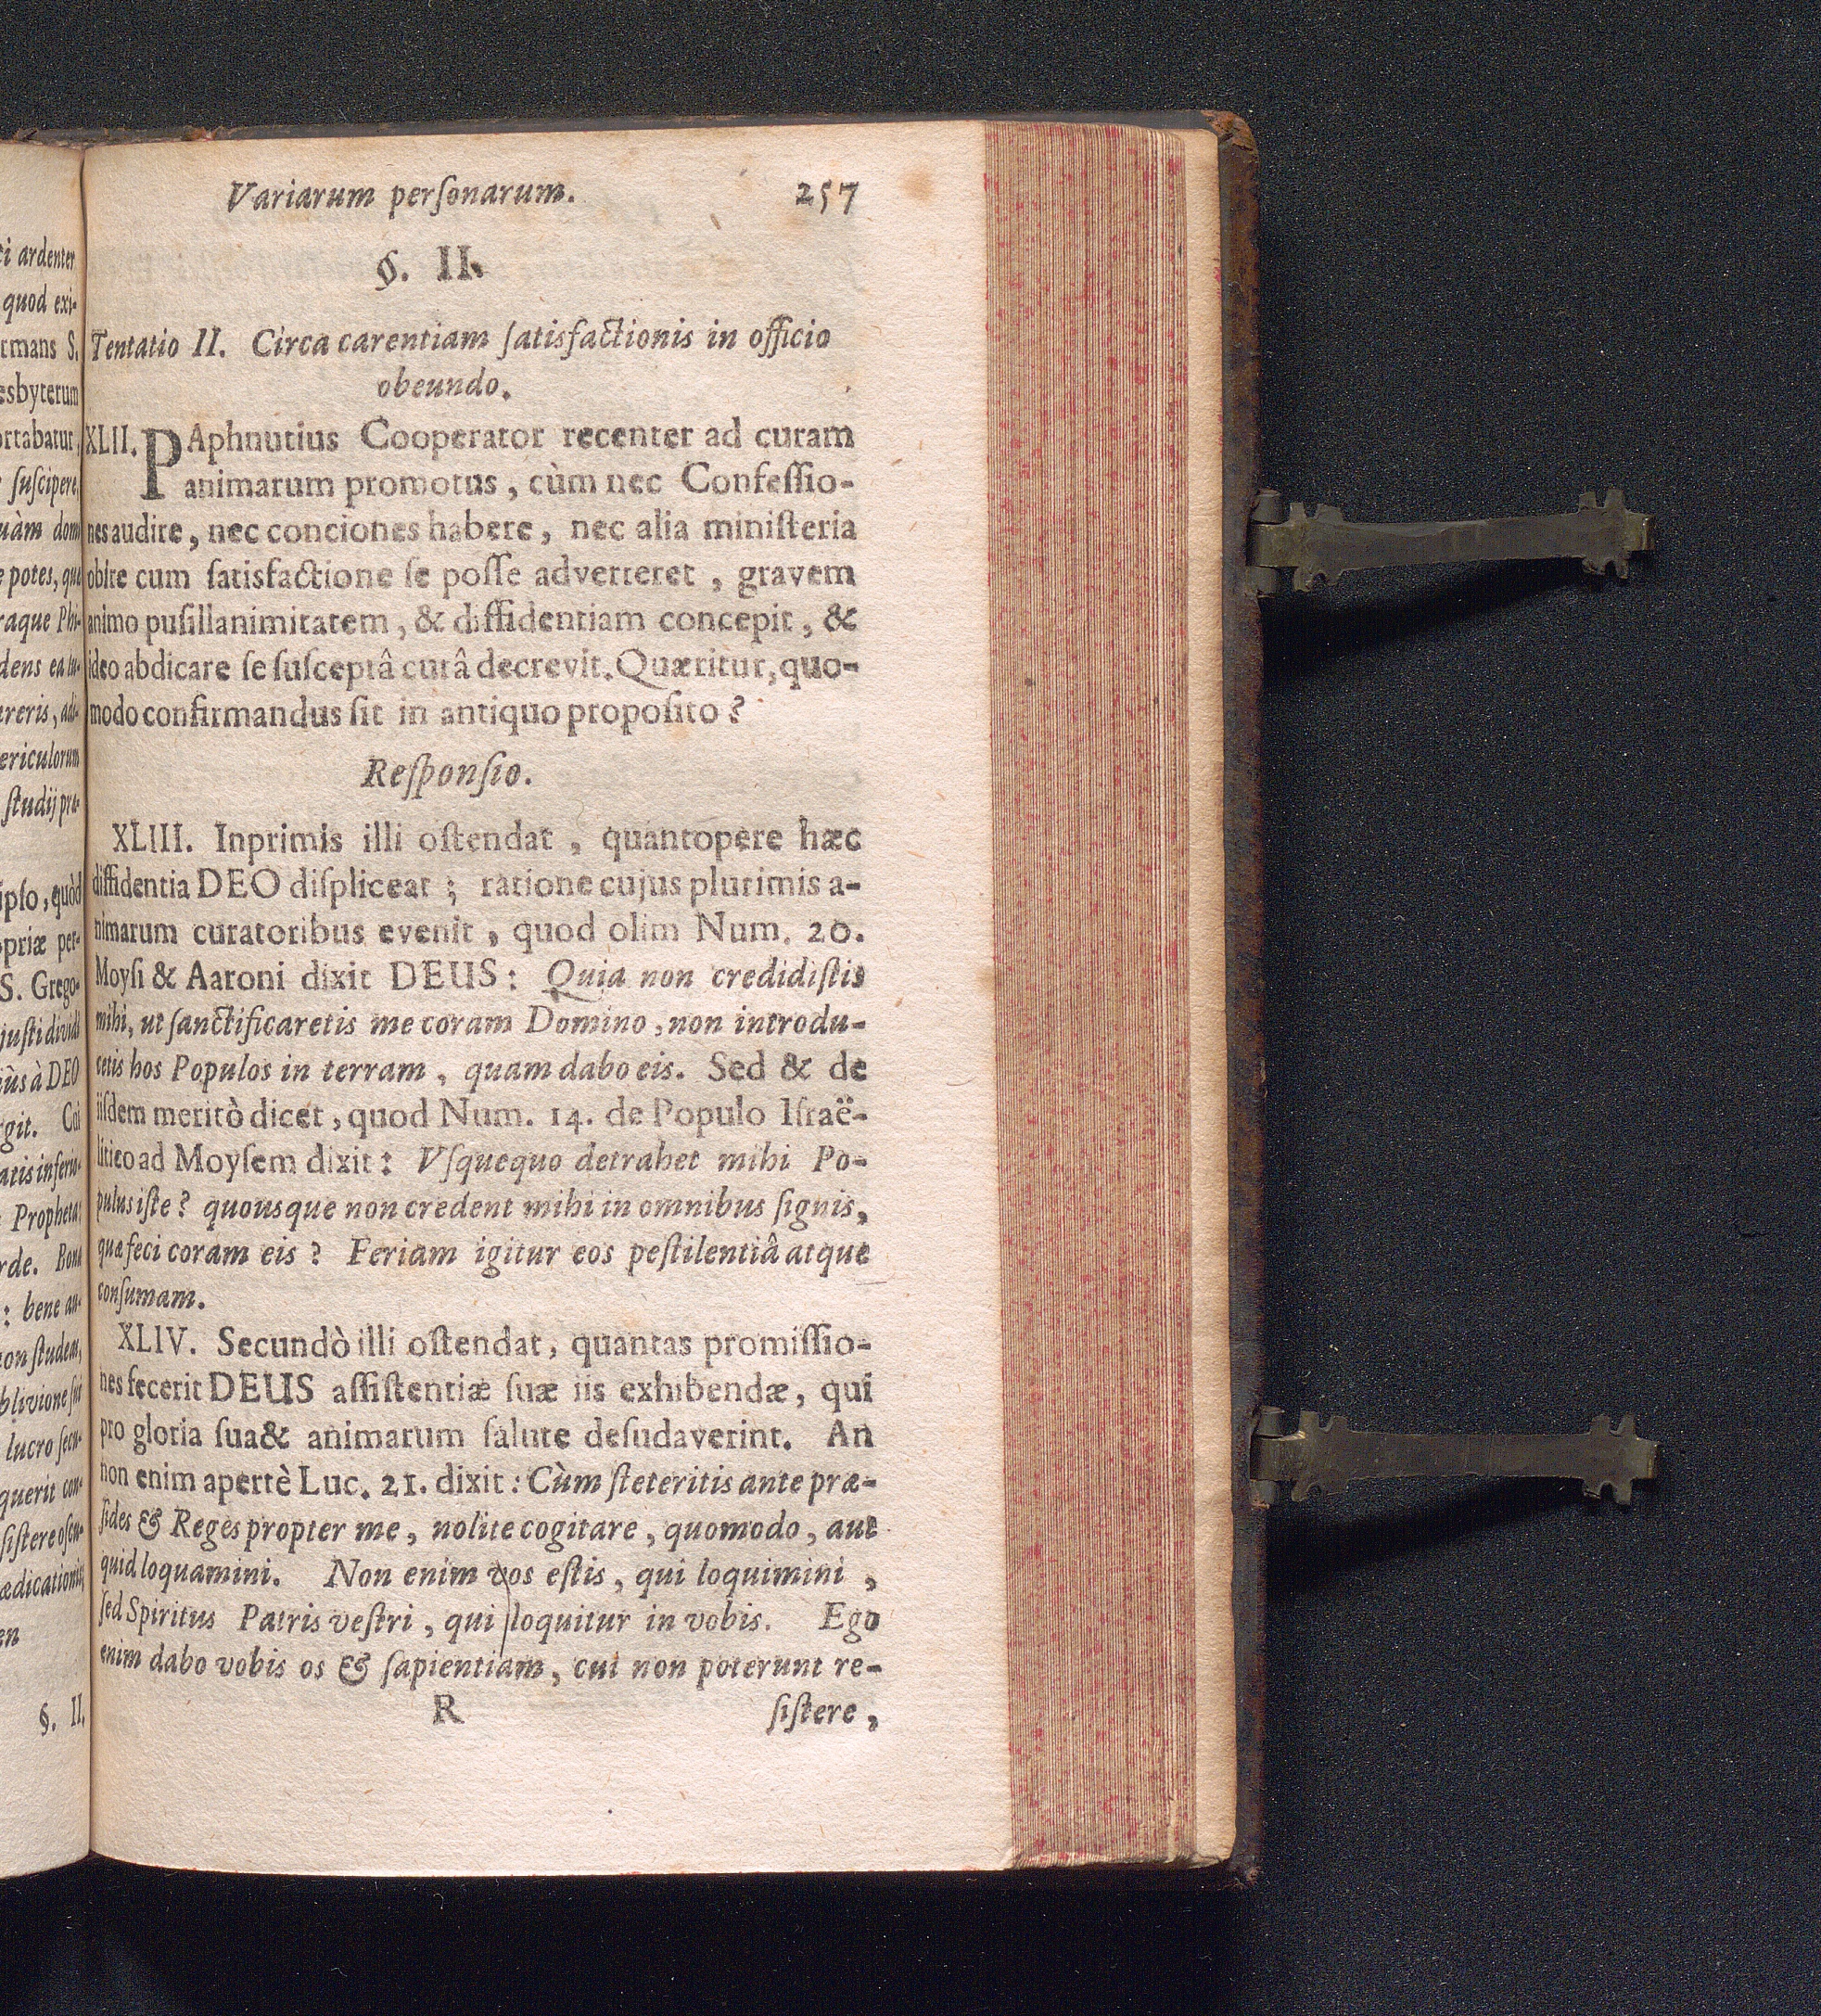 Variarum perſonarum. 257
§. II.
Tentatio II. Circa carentiam ſatisfactionis in officio
obeundo.
XLII. PAphnutius Cooperator recenter ad curam
animarum promotus, cùm nec Confeſſio-
nes audire, nec conciones habere, nec alia miniſteria
obire cum ſatisfactione ſe poſſe adverteret, gravem
animo puſillanimitatem, & diffidentiam concepit, &
ideo abdicare ſe ſuſceptâ curâ decrevit. Quæritur, quo-
modo confirmandus ſit in antiquo propoſito?
Reſponſio.
XLIII. Inprimis illi oſtendat, quantopere hæc
diffidentia DEO diſpliceat; ratione cujus plurimis a-
nimarum curatoribus evenit, quod olim Num. 20.
Moyſi & Aaroni dixit DEUS: Quia non credidiſtis
mihi, ut ſanctificaretis me coram Domino, non introdu-
cetis hos Populos in terram, quam dabo eis. Sed & de
iiſdem meritò dicet, quod Num. 14. de Populo Iſraë-
litico ad Moyſem dixit: Vſquequo detrahet mihi Po-
pulus iſte? quousque non credent mihi in omnibus ſignis,
quæ feci coram eis? Feriam igitur eos peſtilentiâ atque
conſumam.
XLIV. Secundò illi oſtendat, quantas promiſſio-
nes fecerit DEUS aſſiſtentiæ ſuæ iis exhibendæ, qui
pro gloria ſua& animarum ſalute deſudaverint. An
non enim apertè Luc. 21. dixit: Cùm ſteteritis ante præ-
ſides & Reges propter me, nolite cogitare, quomodo, aut
quid loquamini. Non enim vos eſtis, qui loquimini,
ſed Spiritus Patris veſtri, qui loquitur in vobis. Ego
enim dabo vobis os & ſapientiam, cui non poterunt re-
R ſiſtere,